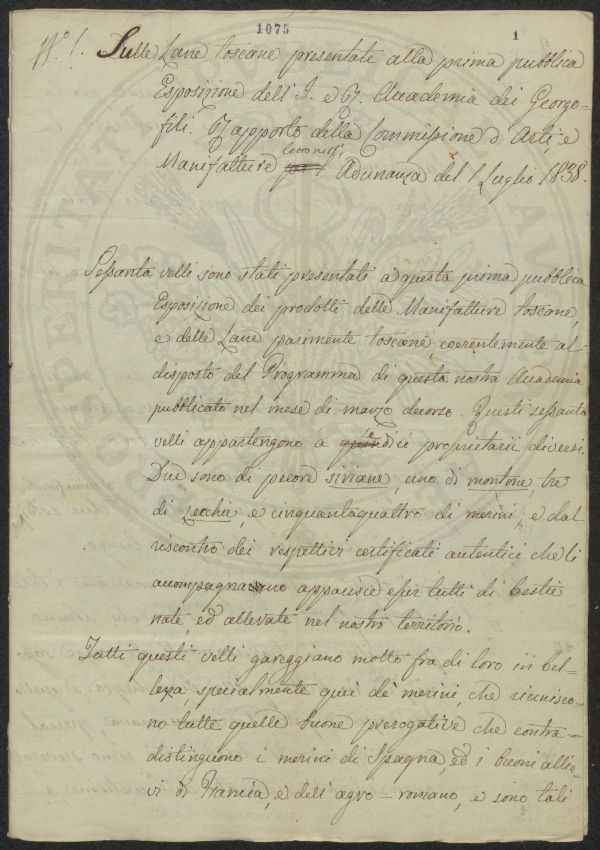 1075
1
N.º 1. Sulle Lane toscane presentate alla prima pubblica
Esposizione dell'I. e R. Accademia dei Georgo-
fili. Rapporto della Commissione d'Arti e
Manifatture letto nell' Adunanza del 1 Luglio 1838.
Sessanta velli sono stati presentati a questa prima pubblica
Esposizione dei prodotti delle Manifatture toscane,
e delle Lane parimente toscane, coerentemente al
disposto del Programma di questa nostra Accademia
pubblicato nel mese di marzo decorso. Questi sessanta
velli appartengono a proprietarii diversi.
Due sono di pecore siviane, uno di montone, tre
di zecchie, e cinquantaquattro di merini; e dal
riscontro dei respettivi certificati autentici che li
accompagnavano apparisce esser tutti di bestie
nate, ed allevate nel nostro territorio.
Tutti questi velli gareggiano molto fra di loro in bel-
lezza specialmente quei de' merini, che riunisco-
no tutte quelle buone prerogative che contra-
distinguono i merini di Spagna, ed i buoni allie-
vi di Francia, e dell'agro-romano, e sono tali